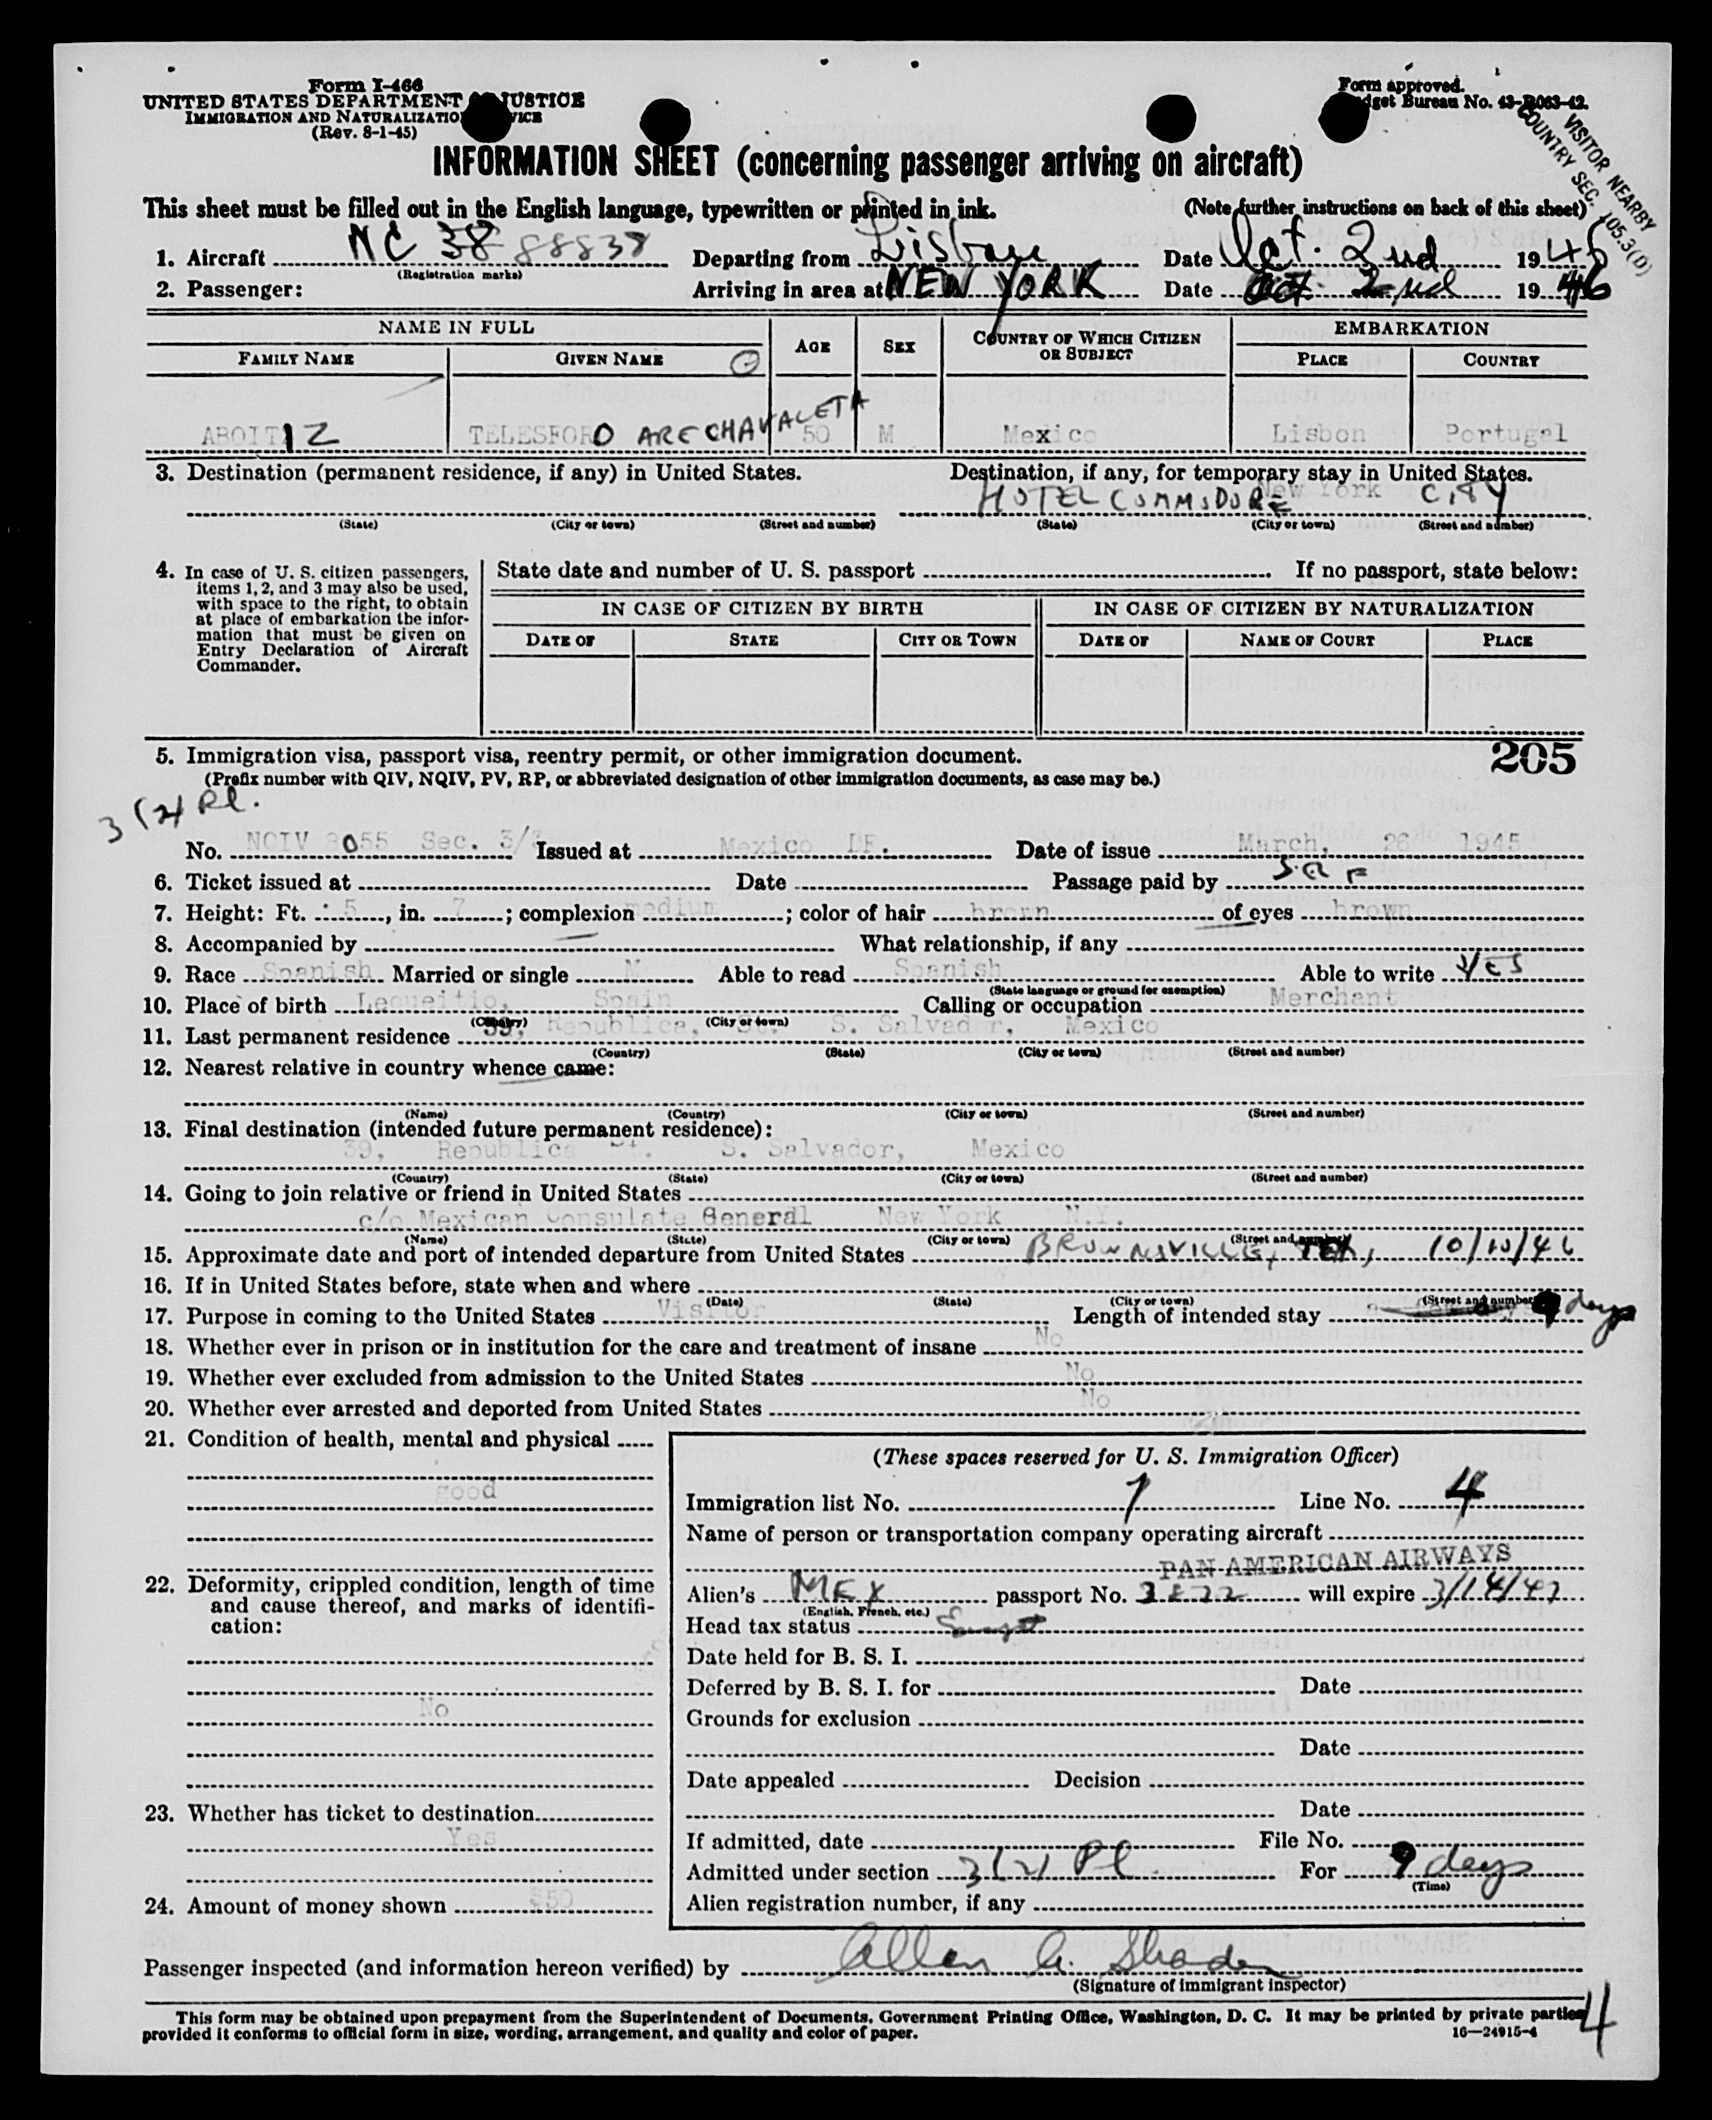 Form I-466
UNITED STATES DEPARTMENT OF JUSTICE
IMMIGRATION AND NATURALIZATION SERVICE
(Rev. 8-1-45)
Form approved.
Budget Bureau No. 43-R063-42.
VISITOR NEARBY
COUNTRY SEC. 105.3(D)
INFORMATION SHEET (concerning passenger arriving on aircraft)
This sheet must be filled out in the English language, typewritten or printed in ink. (Note further instructions on back of this sheet)
1. Aircraft NC 38 88838 Departing from Lisbon Date Oct. 2nd 1946
(Registration marks)
2. Passenger: Arriving in area at NEW YORK Date Oct. 2nd 1946
NAME IN FULL AGE SEX COUNTRY OF WHICH CITIZEN OR SUBJECT EMBARKATION
FAMILY NAME GIVEN NAME PLACE COUNTRY
ABOITIZ TELESFORO ARECHAVALETA 50 M Mexico Lisbon Portugal
3. Destination (permanent residence, if any) in United States. Destination, if any, for temporary stay in United States.
HOTEL COMMODORE New York CITY
(State) (City or town) (Street and number) (State) (City or town) (Street and number)
4. In case of U. S. citizen passengers, items 1, 2, and 3 may also be used, with space to the right, to obtain at place of embarkation the information that must be given on Entry Declaration of Aircraft Commander.
State date and number of U. S. passport If no passport, state below:
IN CASE OF CITIZEN BY BIRTH IN CASE OF CITIZEN BY NATURALIZATION
DATE OF STATE CITY OR TOWN DATE OF NAME OF COURT PLACE
205
5. Immigration visa, passport visa, reentry permit, or other immigration document.
(Prefix number with QIV, NQIV, PV, RP, or abbreviated designation of other immigration documents, as case may be.)
3(2) Pl.
No. 055 Sec. 3/ Issued at Mexico DF. Date of issue March, 26 1945
6. Ticket issued at Date Passage paid by
7. Height: Ft. 5, in. 7; complexion medium; color of hair brown of eyes brown
8. Accompanied by What relationship, if any
9. Race Spanish Married or single M Able to read Spanish Able to write YES
(State language or ground for exemption)
10. Place of birth Lequeitio, Spain Calling or occupation Merchant
(Country) (City or town)
11. Last permanent residence 39, Republica, St. S. Salvador, Mexico
(Country) (State) (City or town) (Street and number)
12. Nearest relative in country whence came:
(Name) (Country) (City or town) (Street and number)
13. Final destination (intended future permanent residence):
39, Republica St. S. Salvador, Mexico
(Country) (State) (City or town) (Street and number)
14. Going to join relative or friend in United States
c/o Mexican Consulate General New York N.Y.
(Name) (State) (City or town) (Street and number)
15. Approximate date and port of intended departure from United States BROWNSVILLE, TEX, 10/10/46
16. If in United States before, state when and where
(Date) (State) (City or town) (Street and number)
17. Purpose in coming to the United States Visitor Length of intended stay 9 days
18. Whether ever in prison or in institution for the care and treatment of insane No
19. Whether ever excluded from admission to the United States No
20. Whether ever arrested and deported from United States No
21. Condition of health, mental and physical
good
22. Deformity, crippled condition, length of time and cause thereof, and marks of identification:
No
23. Whether has ticket to destination
Yes
24. Amount of money shown $50
(These spaces reserved for U. S. Immigration Officer)
Immigration list No. 1 Line No. 4
Name of person or transportation company operating aircraft
PAN AMERICAN AIRWAYS
Alien's MEX passport No. will expire 3/14/47
(English, French, etc.)
Head tax status
Date held for B. S. I.
Deferred by B. S. I. for Date
Grounds for exclusion
Date
Date appealed Decision
Date
If admitted, date File No.
Admitted under section 3(2) Pl. For 9 days
(Time)
Alien registration number, if any
Passenger inspected (and information hereon verified) by Allen A. Shader
(Signature of immigrant inspector)
This form may be obtained upon prepayment from the Superintendent of Documents, Government Printing Office, Washington, D. C. It may be printed by private parties
provided it conforms to official form in size, wording, arrangement, and quality and color of paper. 16—24915-4
4